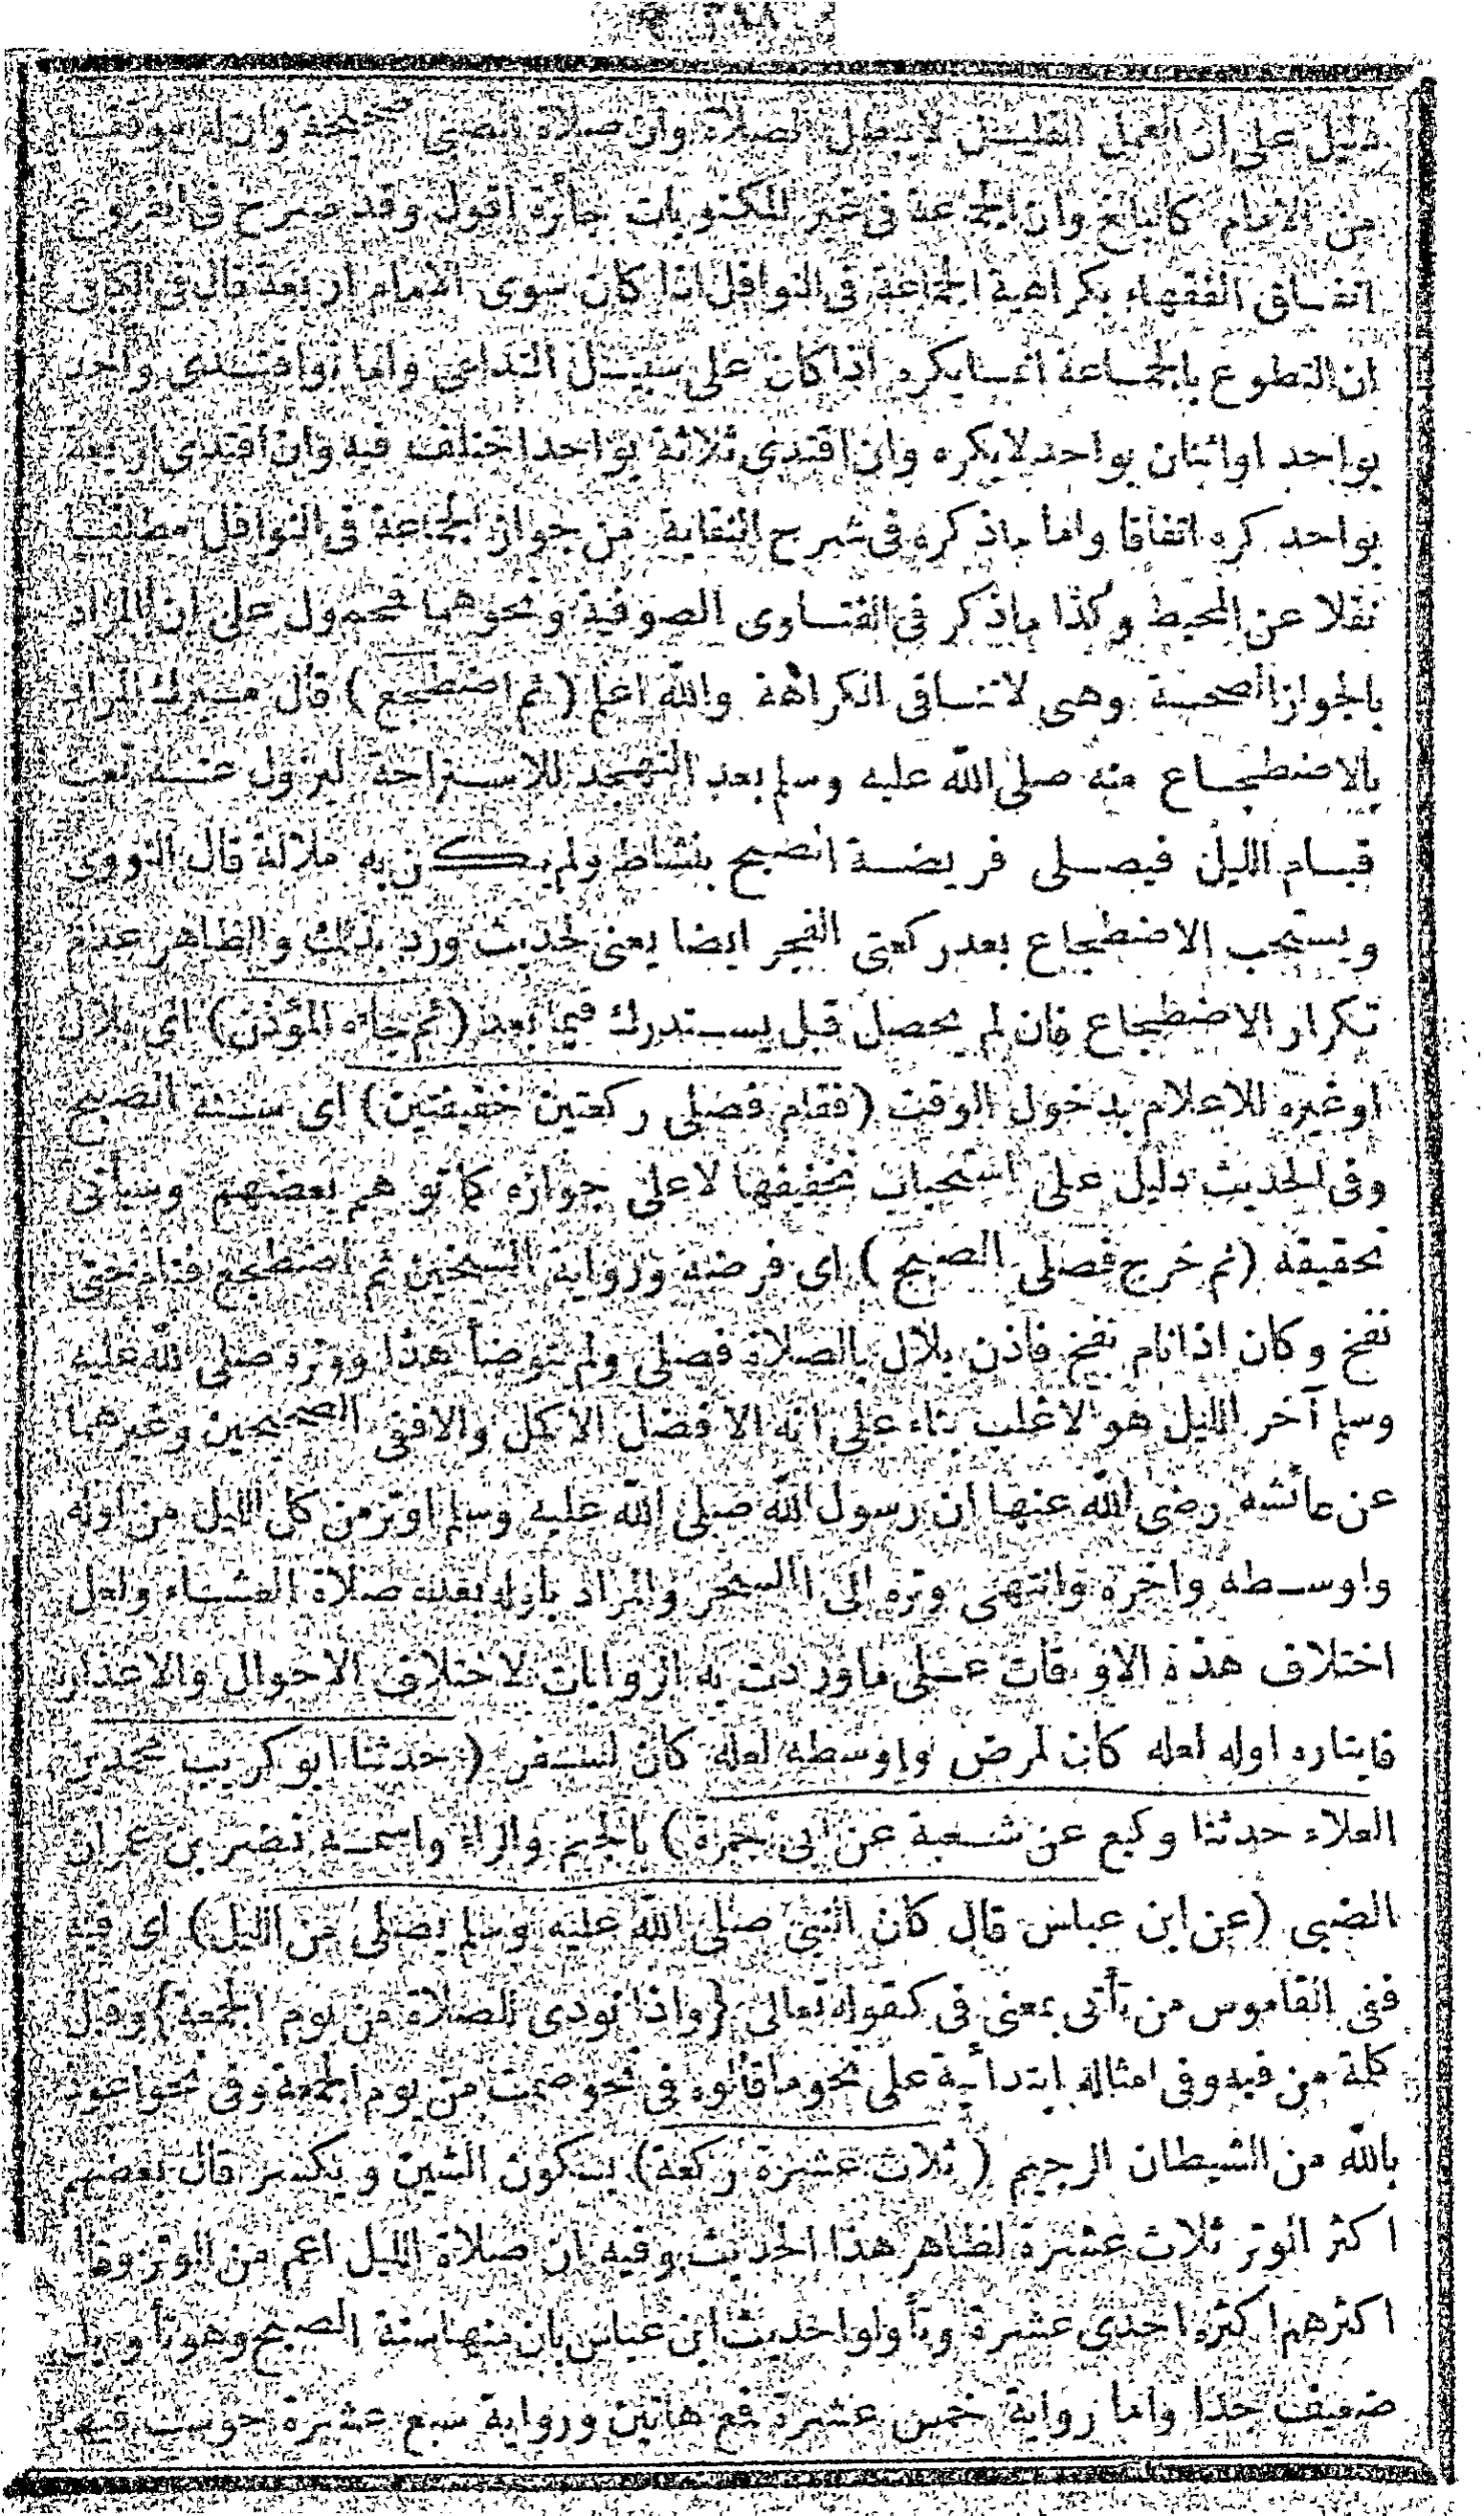 دليل على ان العمل القليل لا يبطل الصلاة وان صلاة الصبي صحيحة وان له موقفا
من الامام كالبالغ وان الجماعة فى غير المكتوبات جائزة اقول وقد صرح فى الفروع
اتفاق الفقهاء بكراهية الجماعة فى النوافل اذا كان سوى الامام اربعة قال فى الكافى
ان التطوع بالجماعة انما يكره اذا كان على سبيل التداعى واما لو اقتدى واحد
بواحد او اثنان بواحد لا يكره وان اقتدى ثلاثة بواحد اختلف فيه وان اقتدى اربعة
بواحد كره اتفاقا واما ما ذكره فى شرح النقاية من جواز الجماعة فى النوافل مطلقا
نقلا عن المحيط وكذا ما ذكر فى الفتاوى الصوفية ونحوهما فمحمول على ان المراد
بالجواز الصحة وهى لا تنافى الكراهة والله اعلم (ثم اضطجع) قال ميرك المراد
بالاضطجاع منه صلى الله عليه وسلم بعد التهجد للاستراحة ليزول عنه تعب
قيام الليل فيصلى فريضة الصبح بنشاط ولم يكن به ملالة قال النووى
ويستحب الاضطجاع بعد ركعتى الفجر ايضا يعنى لحديث ورد بذلك والظاهر عدم
تكرار الاضطجاع فان لم يحصل قبل يستدرك فيما بعد (ثم جاءه المؤذن) اى بلال
او غيره للاعلام بدخول الوقت (فقام فصلى ركعتين خفيفتين) اى سنة الصبح
وفى الحديث دليل على استحباب تخفيفها لا على جوازه كما توهم بعضهم وسيأتى
تحقيقه (ثم خرج فصلى الصبح) اى فرضه ورواية الشيخين ثم اضطجع فنام حتى
نفخ وكان اذا نام نفخ فاذن بلال بالصلاة فصلى ولم يتوضأ هذا ووتره صلى الله عليه
وسلم آخر الليل هو الاغلب بناء على انه الافضل الاكمل والا ففى الصحيحين وغيرهما
عن عائشه رضى الله عنها ان رسول الله صلى الله عليه وسلم اوتر من كل الليل من اوله
واوسطه واخره وانتهى وتره الى االسحر والمراد باوله بعد صلاة العشاء ولعل
اختلاف هذه الاوقات على ما وردت به الروايات لاختلاف الاحوال والاعذار
فايتاره اوله لعله كان لمرض واوسطه لعله كان لسفر (حدثنا ابو كريب محمد بن
العلاء حدثنا وكيع عن شعبة عن ابى جمرة) بالجيم والراء واسمه نصر بن عمران
الضبى (عن ابن عباس قال كان النبى صلى الله عليه وسلم يصلى من الليل) اى فيه
ففى القاموس من تأتى بمعنى فى كقوله تعالى {واذا نودى للصلاة من يوم الجمعة} وقيل
كلمة من فيه وفى امثاله ابتدائية على نحو ما قالوه فى نحو صمت من يوم الجمعة وفى نحو اعوذ
بالله من الشيطان الرجيم (ثلاث عشرة ركعة) بسكون الشين ويكسر قال بعضهم
اكثر الوتر ثلاث عشرة لظاهر هذا الحديث وفيه ان صلاة الليل اعم من الوتر وقال
اكثرهم اكثره احدى عشرة وتأولوا حديث ابن عباس بان منها سنة الصبح وهو تأويل
ضعيف جدا واما رواية خمس عشرة فمع هاتين ورواية سبع عشرة حوسب فيها